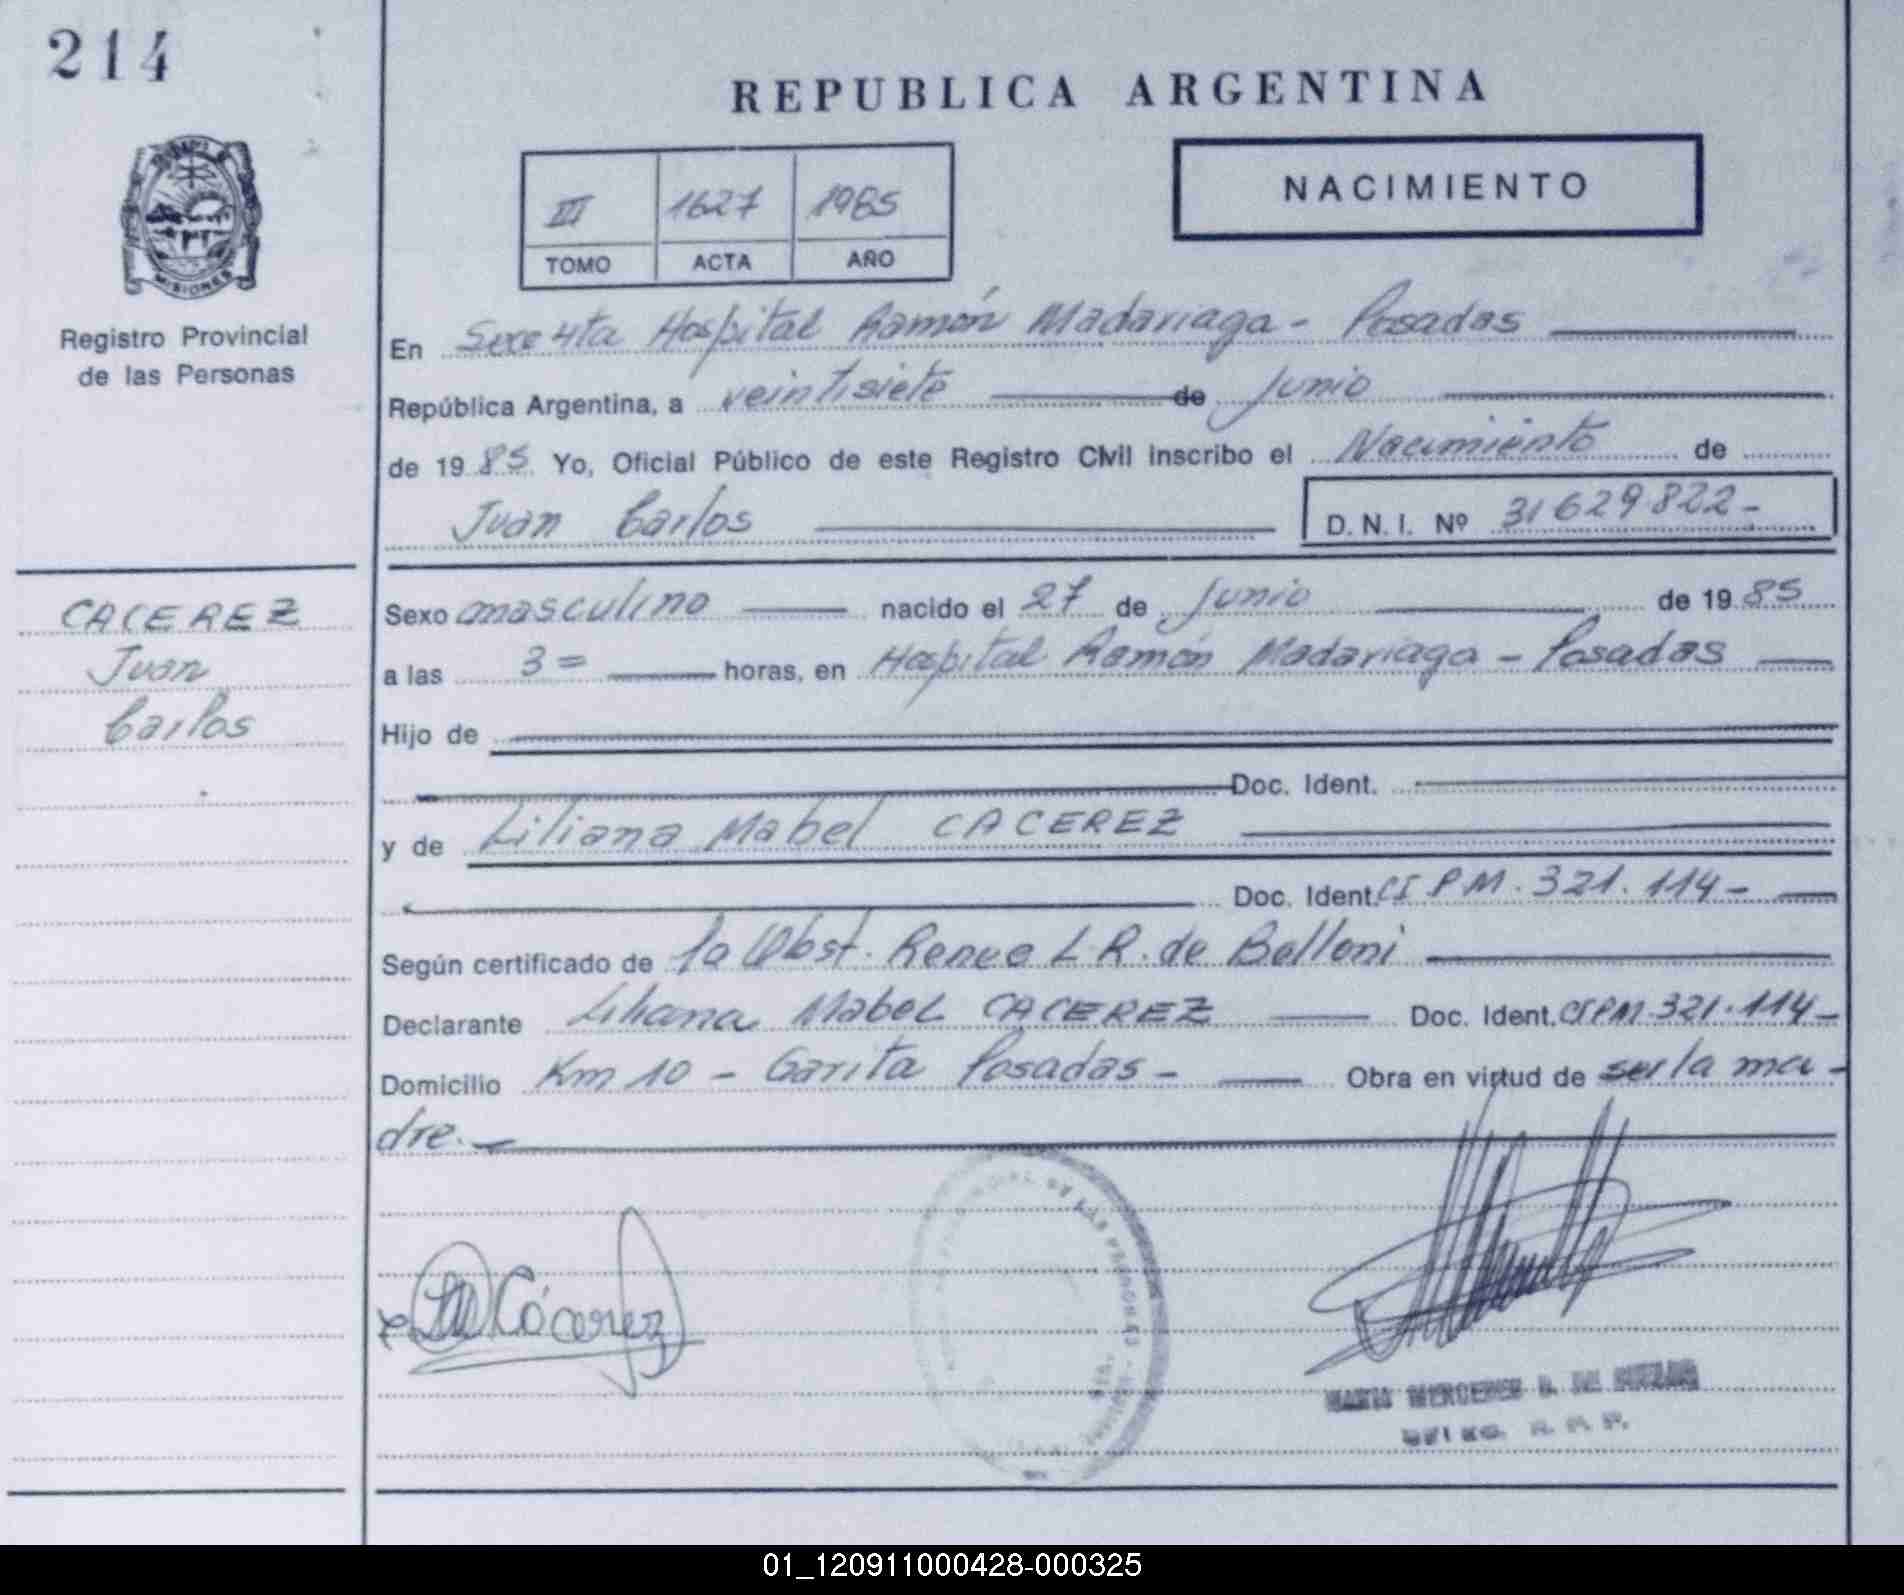 214
REPUBLICA ARGENTINA
NACIMIENTO
III 1627 1985
TOMO ACTA AÑO
MISIONES
Registro Provincial
de las Personas
En Secc 4ta Hospital Ramón Madariaga - Posadas
República Argentina, a veintisiete de Junio
de 19 85 Yo, Oficial Público de este Registro Civil inscribo el Nacimiento de
Juan Carlos D. N. I. Nº 31629822-
CACEREZ
Juan
Carlos
Sexo masculino nacido el 27 de Junio de 19 85
a las 3= horas, en Hospital Ramón Madariaga - Posadas
Hijo de
Doc. Ident.
y de Liliana Mabel CACEREZ
Doc. Ident. CI PM. 321.114-
Según certificado de la Obst. Renee L R. de Belloni
Declarante Liliana Mabel CACEREZ Doc. Ident. CIPM.321.114-
Domicilio Km 10 - Garita Posadas - Obra en virtud de ser la ma-
dre.-
Cácerez
MARIA MERCEDES
01_120911000428-000325